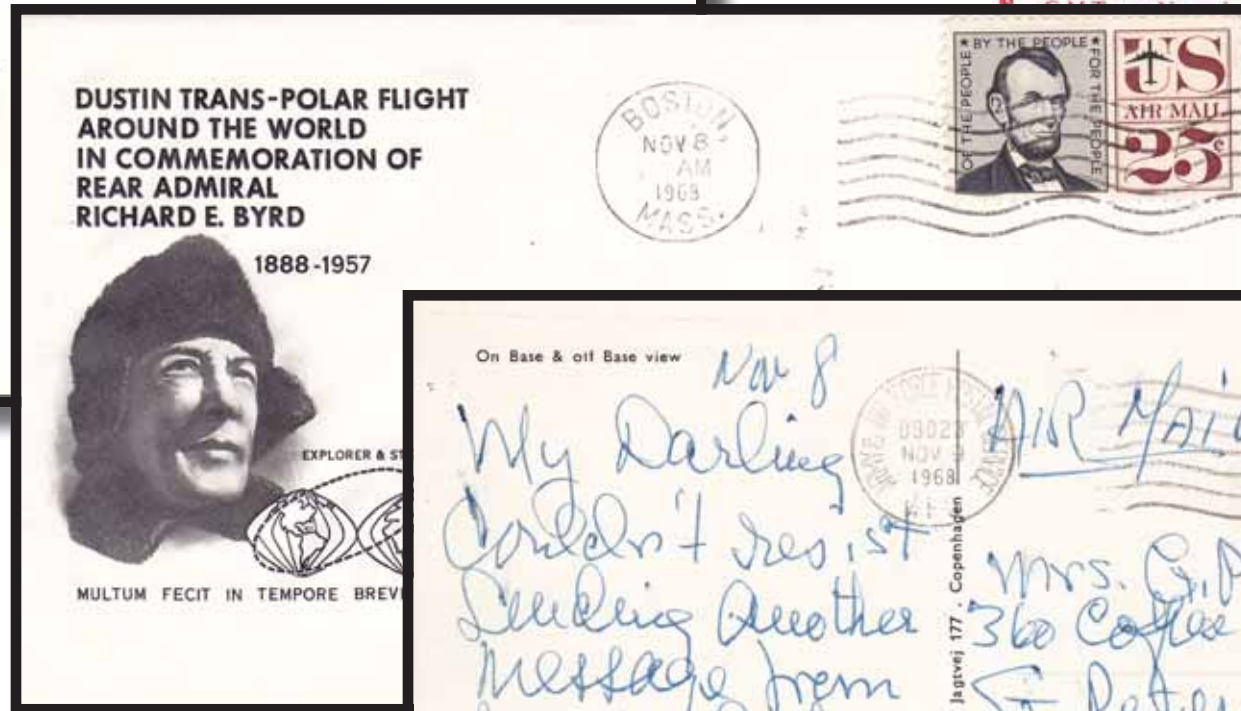 DUSTIN TRANS-POLAR FLIGHT
AROUND THE WORLD
IN COMMEMORATION OF
REAR ADMIRAL
RICHARD E. BYRD
1888-1957
EXPLORER & ST
MULTUM FECIT IN TEMPORE BREVI
BOSTON,
NOV 8
AM
1968
MASS.
★ BY THE PEOPLE ★
OF THE PEOPLE
FOR THE PEOPLE
US
AIR MAIL
25¢
On Base & off Base view
Nov 8
My Darling
Couldn't resist
Sending Another
Message from
09023
NOV 9
1968
AIR MAIL
Jagtvej 177 . Copenhagen
Mrs. G.
360